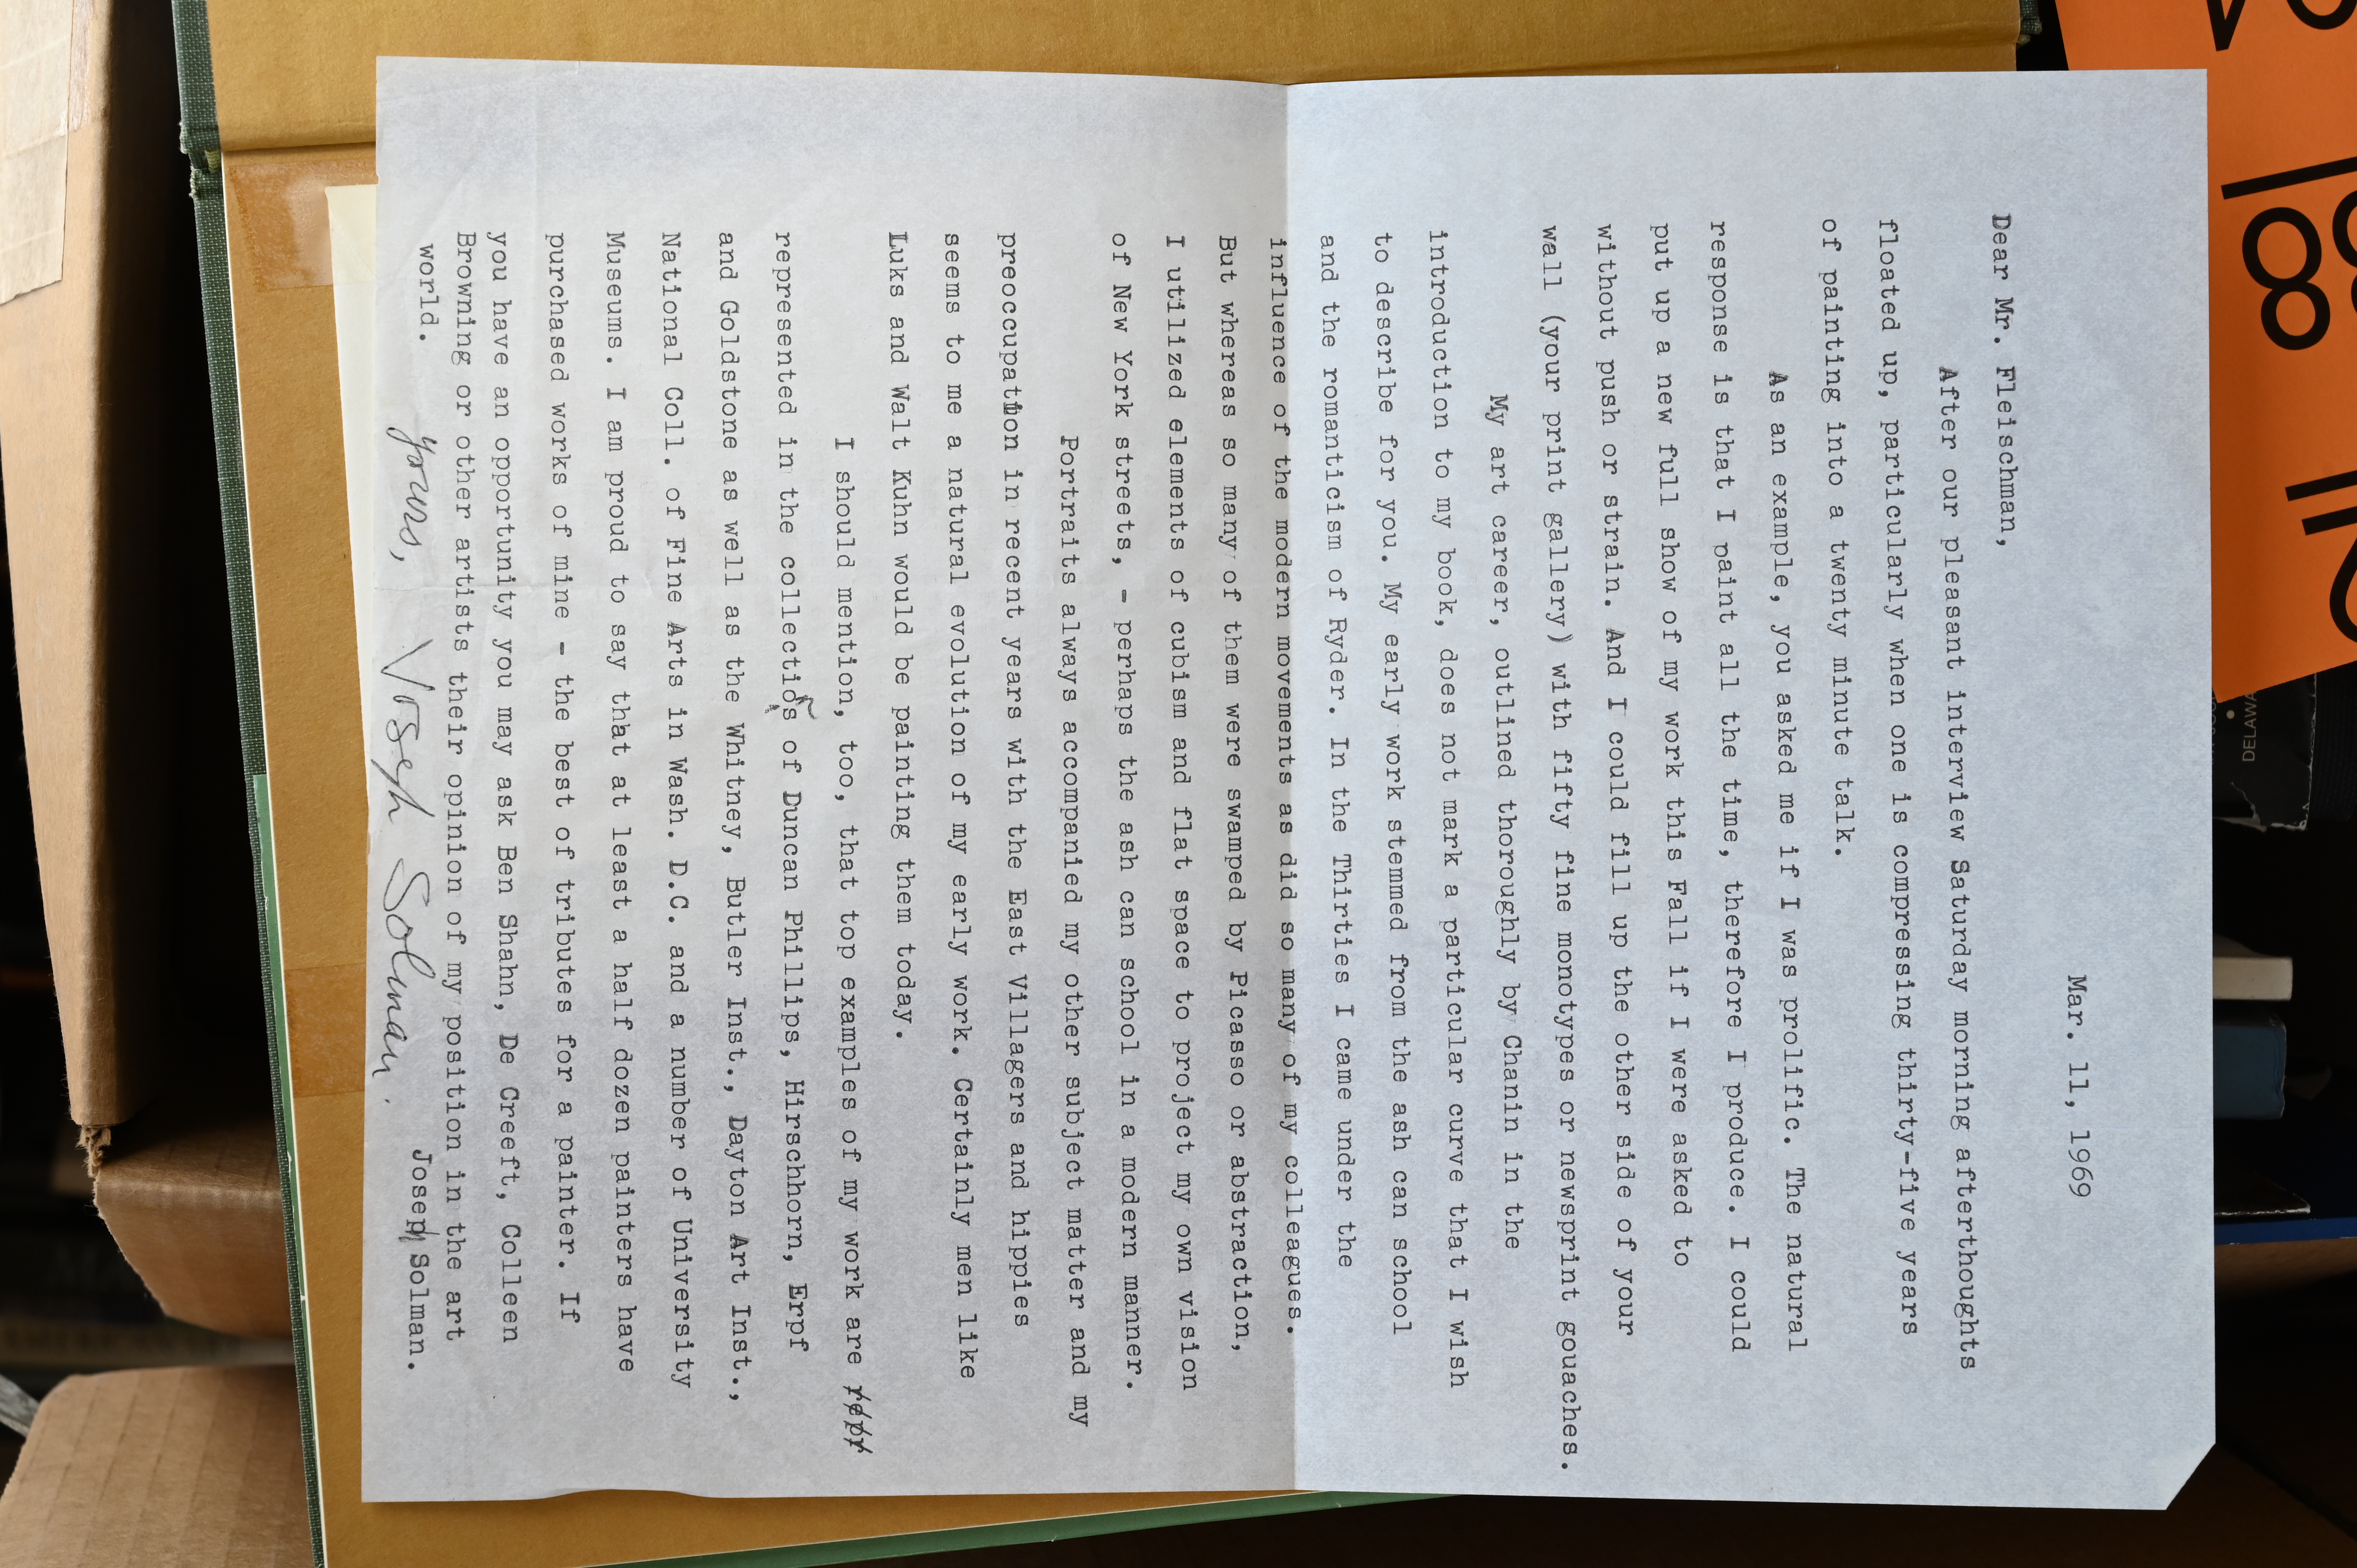 Mar. 11, 1969
Dear Mr. Fleischman,
After our pleasant interview Saturday morning afterthoughts
floated up, particularly when one is compressing thirty-five years
of painting into a twenty minute talk.
As an example, you asked me if I was prolific. The natural
response is that I paint all the time, therefore I produce. I could
put up a new full show of my work this Fall if I were asked to
without push or strain. And I could fill up the other side of your
wall (your print gallery) with fifty fine monotypes or newsprint gouaches.
My art career, outlined thoroughly by Chanin in the
introduction to my book, does not mark a particular curve that I wish
to describe for you. My early work stemmed from the ash can school
and the romanticism of Ryder. In the Thirties I came under the
influence of the modern movements as did so many of my colleagues.
But whereas so many of them were swamped by Picasso or abstraction,
I utilized elements of cubism and flat space to project my own vision
of New York streets, - perhaps the ash can school in a modern manner.
Portraits always accompanied my other subject matter and my
preoccupation in recent years with the East Villagers and hippies
seems to me a natural evolution of my early work. Certainly men like
Luks and Walt Kuhn would be painting them today.
I should mention, too, that top examples of my work are repr
represented in the collections of Duncan Phillips, Hirschhorn, Erpf
and Goldstone as well as the Whitney, Butler Inst., Dayton Art Inst.,
National Coll. of Fine Arts in Wash. D.C. and a number of University
Museums. I am proud to say that at least a half dozen painters have
purchased works of mine - the best of tributes for a painter. If
you have an opportunity you may ask Ben Shahn, De Creeft, Colleen
Browning or other artists their opinion of my position in the art
world.
yours, Joseph Solman.
Joseph Solman.
8
IN
DELAW